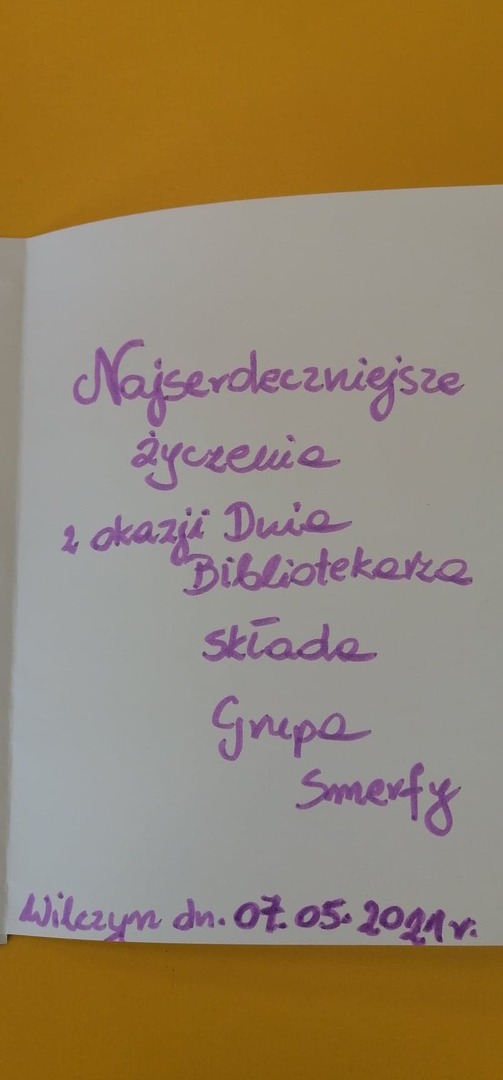 Najserdeczniejsze
życzenia
z okazji Dnia
Bibliotekarza
składa
Grupa
Smerfy
Wilczyn dn. 07.05.2021 r.